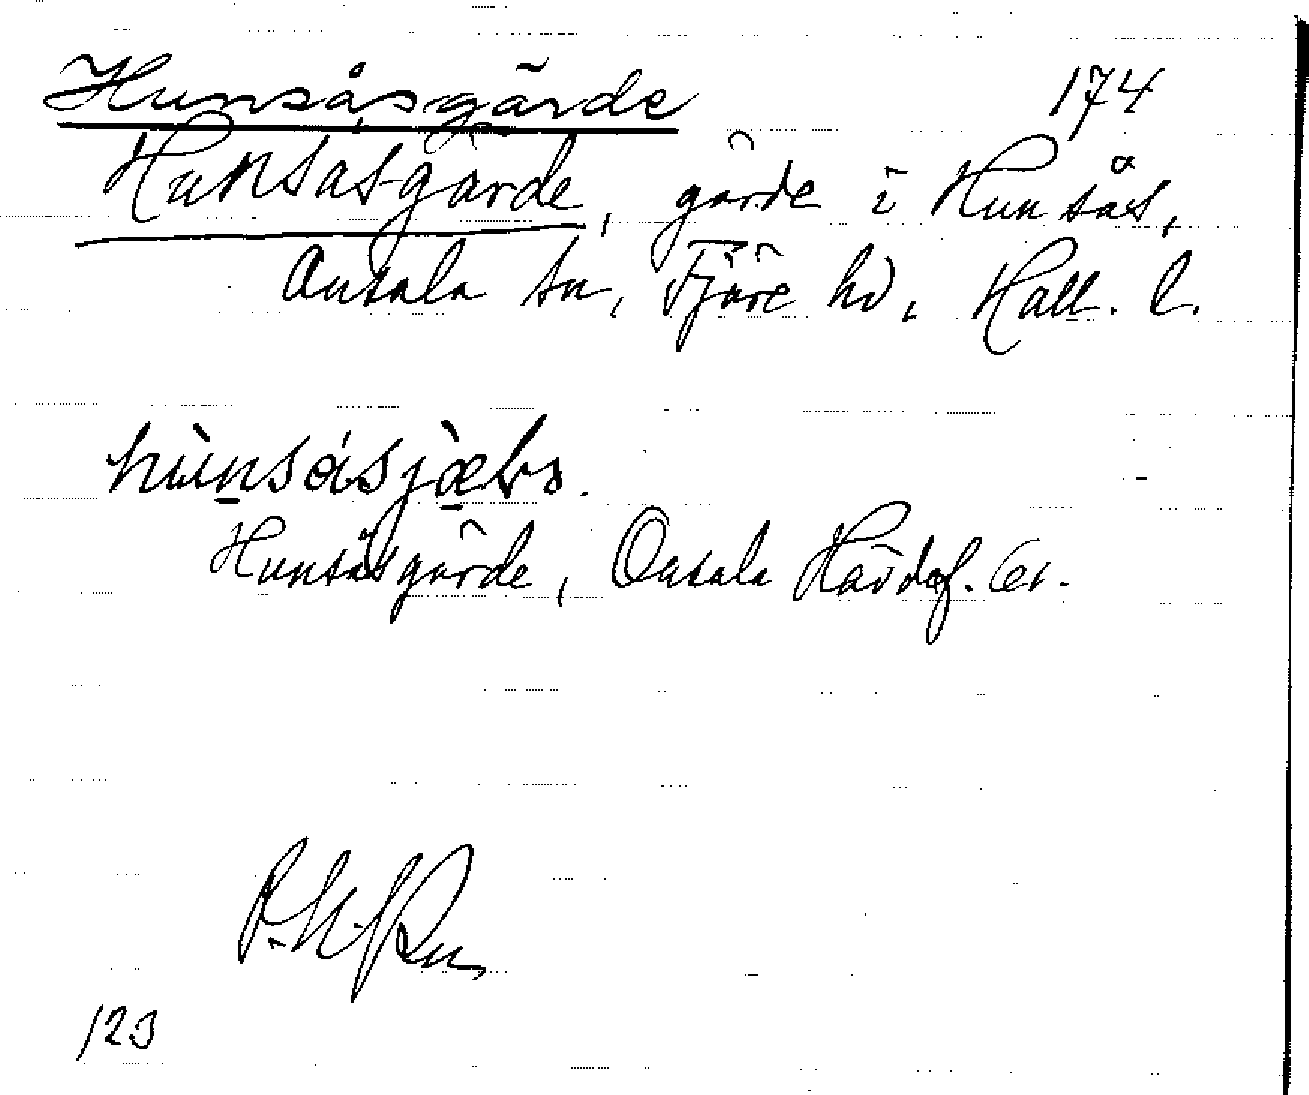 Hunsåsgärde 174
Hunsåsgärde, gärde i Hunsås,
Onsala sn, Fjäre hd, Hall. l.
hùnsåsjæ̀ṛə.
Hunsåsgärde, Onsala Hårdaf.
123